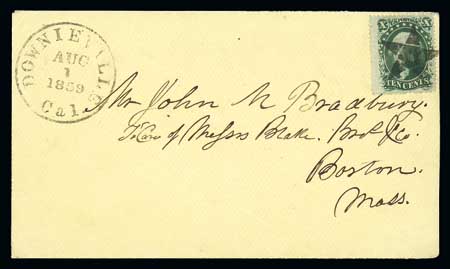 DOWNIEVILLE
AUG
1
1859
Cal.
X X
TEN CENTS
Mr John M Bradbury.
Care of Messrs Blake. Bro & Co.
Boston.
Mass.